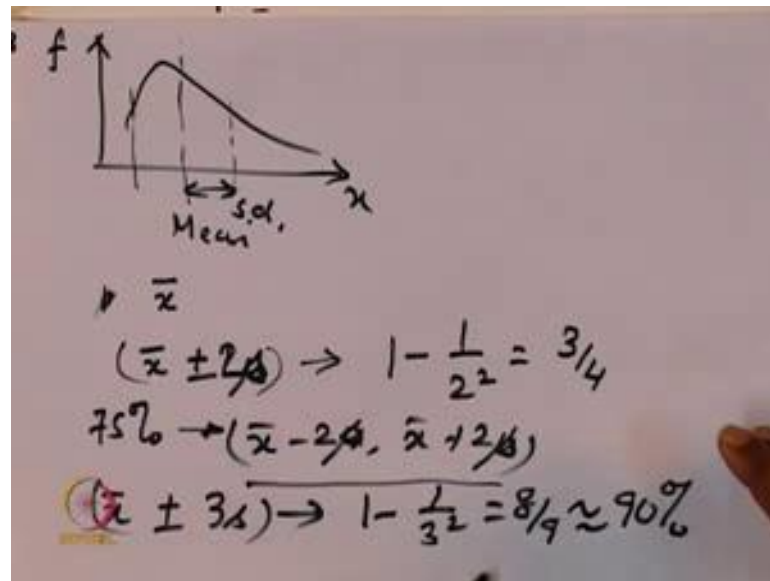 f
x
s.d.
Mean
x̄
(x̄ ± 2s) → 1 - 1/2² = 3/4
75% → (x̄ - 2s, x̄ + 2s)
(x̄ ± 3s) → 1 - 1/3² = 8/9 ≈ 90%